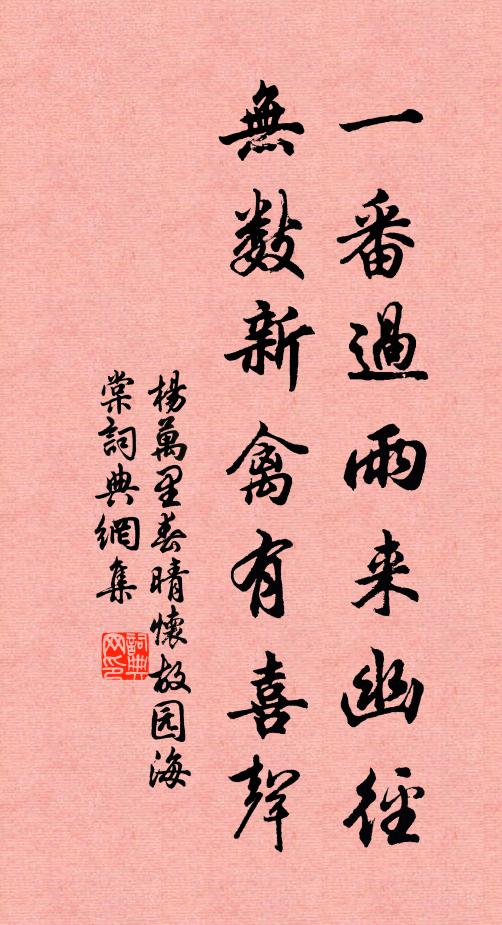 一番過雨来幽徑
無数新禽有喜聲
楊萬里春晴懷故园海
棠詞典網集
詞典网印